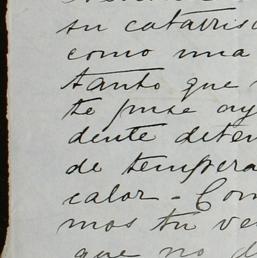 su catarro
como una
tanto que
te puse ay
dente deten
de tempera
calor - Com
mos tu ve
que no d